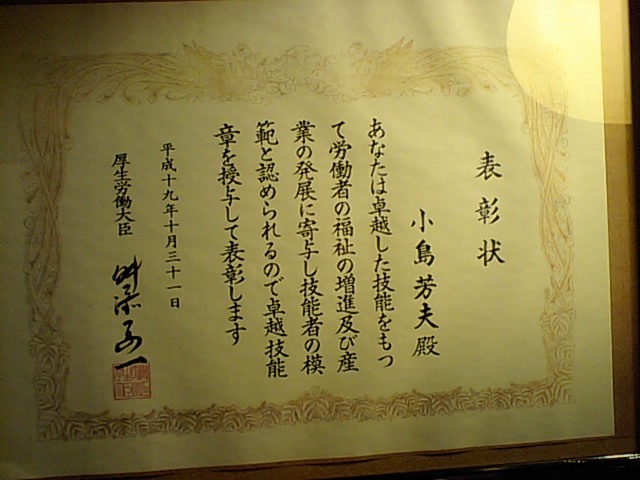 表彰状
小島芳夫殿
あなたは卓越した技能をもっ
て労働者の福祉の増進及び産
業の発展に寄与し技能者の模
範と認められるので卓越技能
章を授与して表彰します
平成十九年十月三十一日
厚生労働大臣 舛添要一